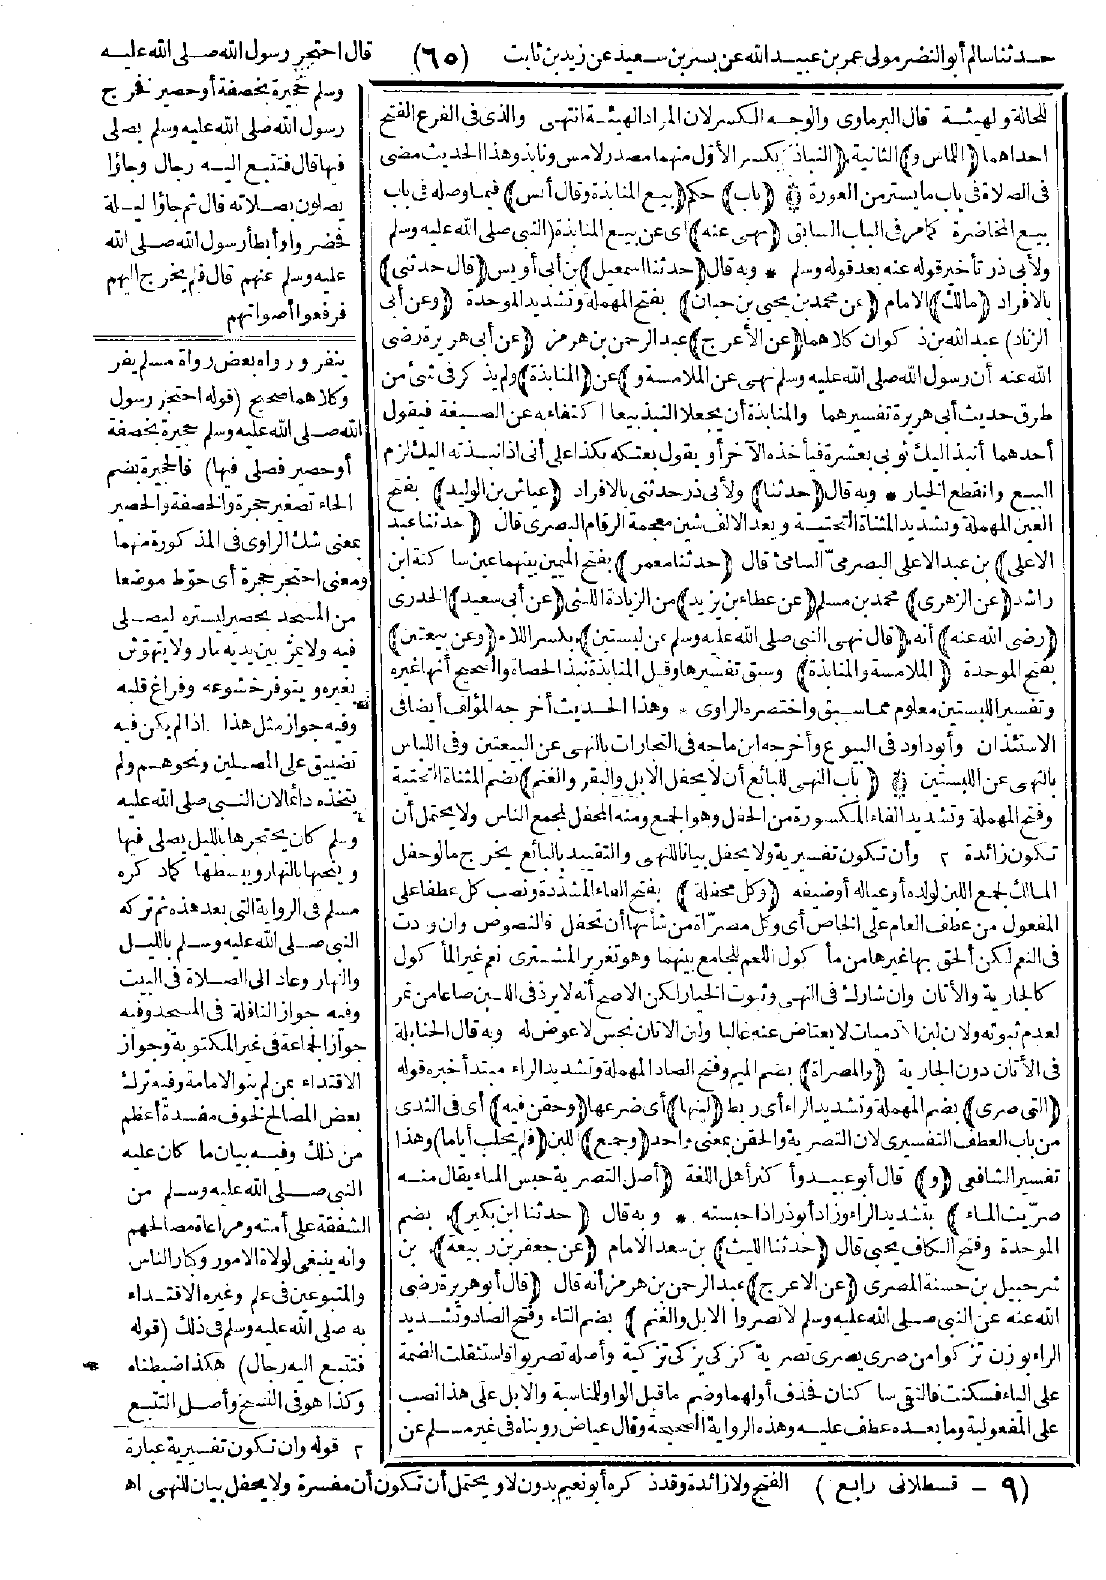 حدثنا سالم أبو النضر مولى عمر بن عبيد الله عن بسر بن سعيد عن زيد بن ثابت (٦٥) قال احتجر رسول الله صلى الله عليه
وسلم حجيرة بخصفة أو حصير فخرج
رسول الله صلى الله عليه وسلم يصلى
فيها قال فتتبع اليه رجال وجاؤا
يصلون بصلاته قال ثم جاؤا ليلة
فحضروا وأبطأ رسول الله صلى الله
عليه وسلم عنهم قال فلم يخرج اليهم
فرفعوا أصواتهم
للحالة ولهيئة قال البرماوى والوجه الكسر لان المراد الهيئة انتهى والذى فى الفرع الفتح
احداهما (اللماس و) الثانية (النباذ) بكسر الأول منهما مصدر لامس ونابذ وهذا الحديث مضى
فى الصلاة فى باب ما يستر من العورة (باب) حكم (بيع المنابذة وقال أنس) فيما وصله فى باب
بيع المخاضرة كما مر فى الباب السابق (نهى عنه) اى عن بيع المنابذة (النبى صلى الله عليه وسلم
ولأبى ذر تأخير قوله عنه بعد قوله وسلم * وبه قال (حدثنا اسمعيل) بن أبى أويس (قال حدثنى)
بالافراد (مالك) الامام (عن محمد بن يحيى بن حبان) بفتح المهملة وتشديد الموحدة (وعن أبى
الزناد) عبد الله بن ذكوان كلاهما (عن الأعرج) عبد الرحمن بن هرمز (عن أبى هريرة رضى
الله عنه أن رسول الله صلى الله عليه وسلم نهى عن الملامسة و) عن (المنابذة) ولم يذكر فى شئ من
طرق حديث أبى هريرة تفسيرهما والمنابذة أن يجعلا النبذ بيعا اكتفاء به عن الصيغة فيقول
أحدهما أنبذ اليك ثوبى بعشرة فيأخذه الآخر أو يقول بعتكه بكذا على أنى اذا نبذته اليك لزم
البيع وانقطع الخيار * وبه قال (حدثنا) ولأبى ذر حدثنى بالافراد (عياش بن الوليد) بفتح
العين المهملة وتشديد المثناة التحتية وبعد الالف شين معجمة الرقام البصرى قال (حدثنا عبد
الاعلى) بن عبد الاعلى البصرى السامى قال (حدثنا معمر) بفتح الميمين بينهما عين ساكنة ابن
راشد (عن الزهرى) محمد بن مسلم (عن عطاء بن يزيد) من الزيادة الليثى (عن أبى سعيد) الخدرى
(رضى الله عنه) أنه (قال نهى النبى صلى الله عليه وسلم عن لبستين) بكسر اللام (وعن بيعتين)
بفتح الموحدة (الملامسة والمنابذة) وسبق تفسيرها وقيل المنابذة نبذ الحصاة والصحيح أنها غيره
وتفسير اللبستين معلوم مما سبق واختصره الراوى * وهذا الحديث أخرجه المؤلف أيضا فى
الاستئذان وأبو داود فى البيوع وأخرجه ابن ماجه فى التجارات بالنهى عن البيعتين وفى اللباس
بالنهى عن اللبستين (باب النهى للبائع أن لا يحفل الابل والبقر والغنم) بضم المثناة التحتية
وفتح المهملة وتشديد الفاء المكسورة من الحفل وهو الجمع ومنه المحفل لمجمع الناس ولا يحتمل أن
تكون زائدة ٢ وأن تكون تفسيرية ولا يحفل بيانا للنهى والتقييد بالبائع يخرج ما لو حفل
المالك لجمع اللبن لولده أو عياله أو ضيفه (وكل محفلة) بفتح الفاء المشددة ونصب كل عطفا على
المفعول من عطف العام على الخاص أى وكل مصرّاة من شأنها أن تحفل فالنصوص وان وردت
فى النعم لكن ألحق بها غيرها من مأكول اللحم للجامع بينهما وهو تغرير المشترى نعم غير المأكول
كالجارية والأتان وان شارك فى النهى وثبوت الخيار لكن الاصح أنه لا يرد فى اللبن صاعا من تمر
لعدم ثبوته ولان لبن الآدميات لا يعتاض عنه غالبا ولبن الاتان نجس لا عوض له وبه قال الحنابلة
فى الأتان دون الجارية (والمصراة) بضم الميم وفتح الصاد المهملة وتشديد الراء مبتدأ خبره قوله
(التى صرى) بضم المهملة وتشديد الراء أى ربط (لبنها) أى ضرعها (وحقن فيه) أى فى الثدى
من باب العطف التفسيرى لان التصرية والحقن بمعنى واحد (وجمع) اللبن (فلم يحلب أياما) وهذا
تفسير الشافعى (و) قال أبو عبيد وأكثر أهل اللغة (أصل التصرية حبس الماء يقال منه
صرّيت الماء) بتشديد الراء وزاد أبو ذر اذا حبسته * وبه قال (حدثنا ابن بكير) بضم
الموحدة وفتح الكاف يحيى قال (حدثنا الليث) بن سعد الامام (عن جعفر بن ربيعة) بن
شرحبيل بن حسنة المصرى (عن الاعرج) عبد الرحمن بن هرمز أنه قال (قال أبو هريرة رضى
الله عنه عن النبى صلى الله عليه وسلم لا تصروا الابل والغنم) بضم التاء وفتح الصاد وتشديد
الراء بوزن تزكوا من صرى يصرى تصرية كزكى يزكى تزكية وأصله تصريوا فاستثقلت الضمة
على الياء فسكنت فالتقى ساكنان فحذف أولهما وضم ما قبل الواو للمناسبة والابل على هذا نصب
على المفعولية وما بعده عطف عليه وهذه الرواية الصحيحة وقال عياض رويناه فى غير مسلم عن
ينفر ورواه بعض رواة مسلم يفر
وكلاهما صحيح (قوله احتجر رسول
الله صلى الله عليه وسلم حجيرة بخصفة
أو حصير فصلى فيها) فالحجيرة بضم
الحاء تصغير حجرة والخصفة والحصير
بمعنى شك الراوى فى المذكورة منهما
ومعنى احتجر حجرة أى حوّط موضعا
من المسجد بحصير ليستره ليصلى
فيه ولا يمرّ بين يديه مار ولا يتهوّش
بغيره ويتوفر خشوعه وفراغ قلبه
وفيه جواز مثل هذا اذا لم يكن فيه
تضييق على المصلين ونحوهم ولم
يتخذه دائما لان النبى صلى الله عليه
وسلم كان يحتجرها بالليل يصلى فيها
وينحيها بالنهار ويبسطها كما ذكره
مسلم فى الرواية التى بعد هذه ثم تركه
النبى صلى الله عليه وسلم بالليل
والنهار وعاد الى الصلاة فى البيت
وفيه جواز النافلة فى المسجد وفيه
جواز الجماعة فى غير المكتوبة وجواز
الاقتداء بمن لم ينو الامامة وفيه ترك
بعض المصالح لخوف مفسدة أعظم
من ذلك وفيه بيان ما كان عليه
النبى صلى الله عليه وسلم من
الشفقة على أمته ومراعاة مصالحهم
وانه ينبغى لولاة الامور وكبار الناس
والمتبوعين فى علم وغيره الاقتداء
به صلى الله عليه وسلم فى ذلك (قوله
فتتبع اليه رجال) هكذا ضبطناه
وكذا هو فى النسخ وأصل التتبع
٢ قوله وان تكون تفسيرية عبارة
الفتح ولا زائدة وقد ذكره أبو نعيم بدون لا ويحتمل أن تكون أن مفسرة ولا يحفل بيان للنهى اه
(٩ - قسطلانى رابع)